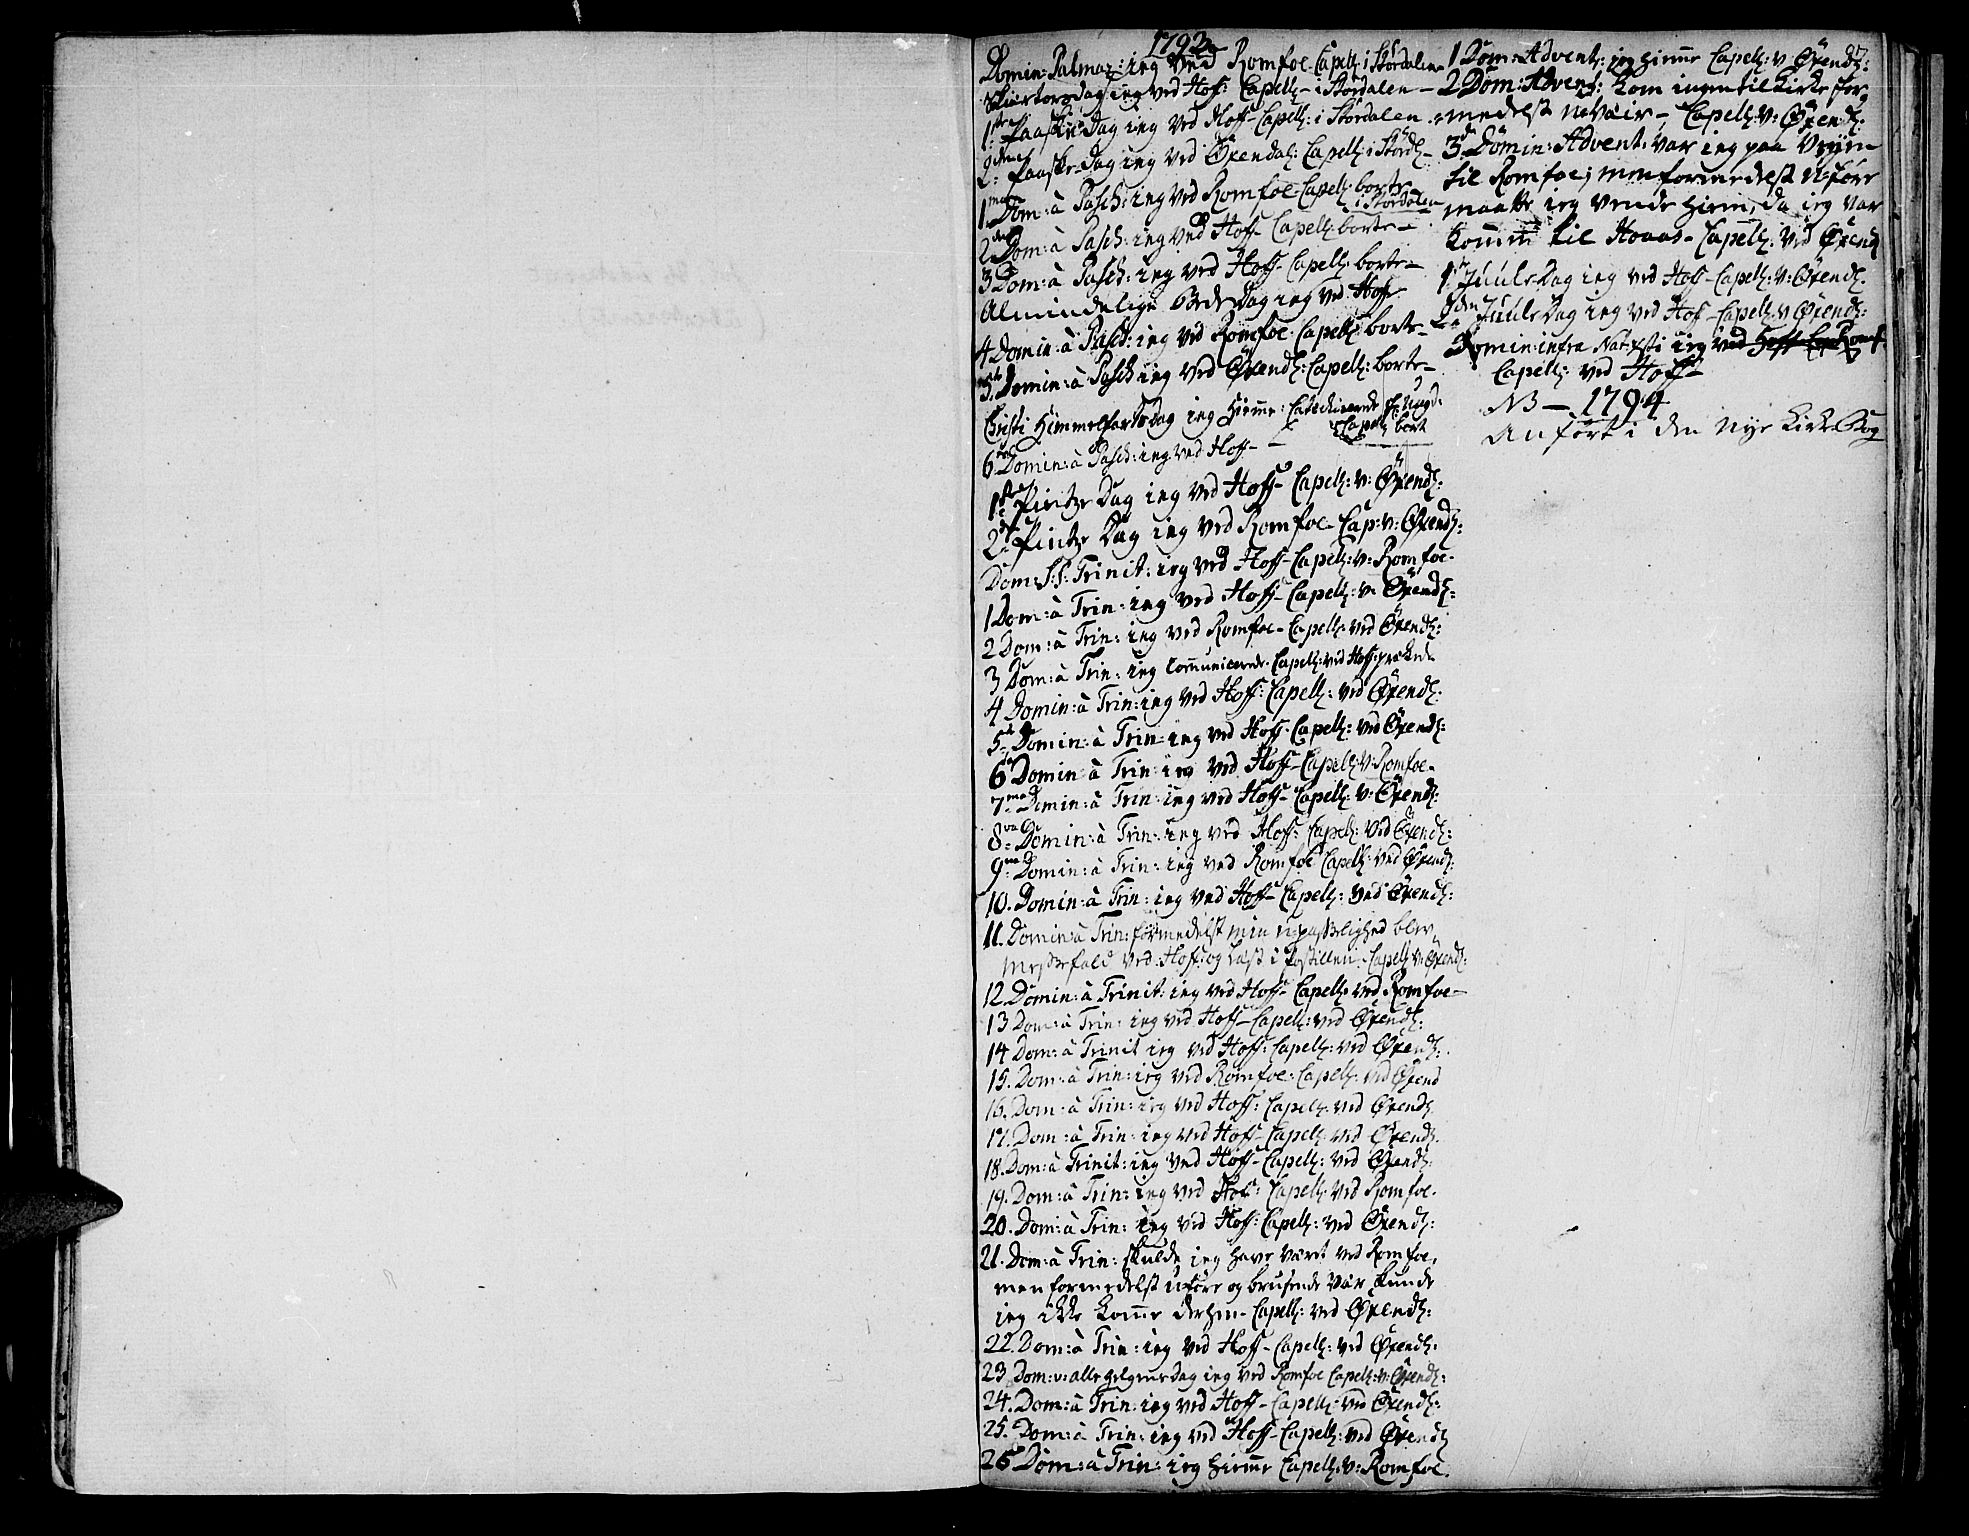 1793
Domin: Palmar: ieg ved Romfoe Capell: i Stordalen
Skiertorsdag ieg ved Hof: Capell – i Stordalen –
1ste Paaske Dag ieg ved Hoff – Capell: i Stordalen
2den Paaske Dag ieg ved Øxendal: Capell: i Stordl –
1ma Dom: à Pasch: ieg ved Romfoe Capell: borte
i Stordalen
2da Dom: à Pasch: ieg ved Hoff Capell: borte –
3 Dom: à Pasch: ieg ved Hoff – Capell: borte –
Almindelige Bede Dag ieg ved Hoff
4 Domin: à Pasch: ieg ved Romfoe Capell: borte –
5te Domin: à Pasch ieg ved Øxendl: Capell: borte –
Christi Himmelfarts Dag ieg hieme: Catechiserede
Capell: bort
6 Domin: à Pasch: ieg ved Hoff –
1ste Pintze Dag ieg ved Hoff – Capell: v: Øxendl:
2den Pintze Dag ieg ved Romfoe – Cap: v: Øxendl:
Dom: S:S: Trinit: ieg ved Hoff – Capell: v: Romfoe –
1 Dom: à Trin: ieg ved Hoff – Capell: v: Øxendl:
2 Dom: à Trin: ieg ved Romfoe – Capell: ved Øxendl:
3 Dom: à Trin: ieg Communicerede Capell: ved Hoff: prækede
4 Domin: à Trin: ieg ved Hoff: Capell: ved Øxendl:
5te Domin: à Trin: ieg ved Hoff: Capell: ved Øxendl:
6 Domin: à Trin: ieg ved Hoff – Capell: v: Romfoe –
7ma Domin: à Trin: ieg ved Hoff – Capell: v: Øxendl:
8va Domin: à Trin: ieg ved Hoff: Capell: ved Øxendl:
9na Domin: à Trin: ieg ved Romfoe Capell: ved Øxendl:
10. Domin: à Trin: ieg ved Hoff – Capell: ved Øxendl:
11. Domin: à Trin: formedelst min upasselighed blev
Messefald ved Hoff: og læst i Postillen – Capell: v: Øxendl:
12. Domin: à Trinit: ieg ved Hoff – Capell: ved Romfoe –
13 Dom: à Trin: ieg ved Hoff – Capell: ved Øxendl:
14 Dom: à Trinit ieg ved Hoff: Capell: ved Øxendl:
15. Dom: à Trin: ieg ved Romfoe: Capell: ved Øxend
16. Dom: à Trin: ieg ved Hoff: Capell: ved Øxendl
17. Dom: à Trin: ieg ved Hoff – Capell: ved Øxendl.
18. Dom: à Trinit: ieg ved Hoff – Capell: ved Øxendl:
19. Dom: à Trin: ieg ved Hof: Capell: ved Romfoe.
20. Dom: à Trin: ieg ved Hoff: Capell: ved Øxendl:
21. Dom: à Trin: skulde ieg have været ved Romfoe,
men formedelst uføre og brusende Vær kunde
ieg ikke komme derhen – Capell: ved Øxendl:
22. Dom: à Trin: ieg ved Hoff – Capell: ved Øxendl:
23 Dom: v: alle helgens Dag ieg ved Romfoe Capell: v: Øxendl:
24. Dom: à Trin: ieg ved Hoff – Capell: ved Øxendl:
25. Dom: à Trin: ieg ved Hoff – Capell: ved Øxendl
26 Dom: à Trin: ieg hieme Capell: v: Romfoe.
1 Dom: Advent: ieg hieme Capell: v: Øxendl:
2 Dom: Advent: kom ingen til Kirke for
medelst uvæir – Capell: v: Øxendl:
3de Domin: Advent: var ieg paa Veyen
til Romfoe; men formedelst uføre
maatte ieg vende hiem, da ieg var
kommen til Hoaas – Capell: ved Øxend
1ste Juule Dag ieg ved Hoff – Capell: v: Øxendl.
2den Juule Dag ieg ved Hof – Capell: v: Øxendl:
Domin: infra Nat: xsti ieg ved Hoff Cap Romf
Capell: ved Hoff –
NB – 1794
Anført i den Nye Kirke Bog